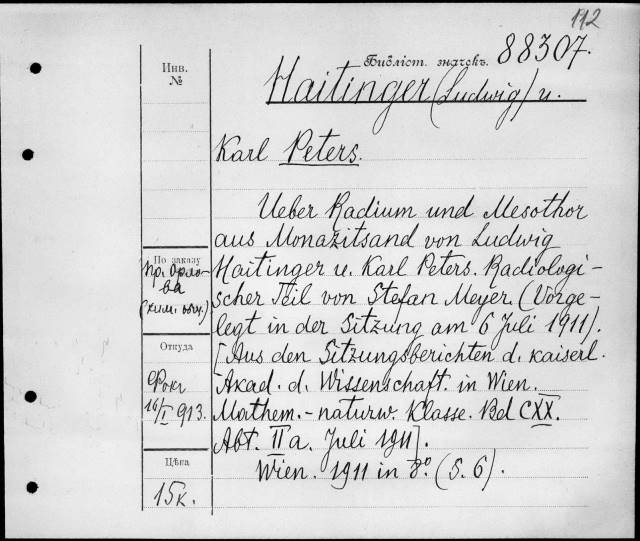 112
Библіот. значекъ. 88307.
Инв.
№
Haitinger (Ludwig) u.
Karl Peters.
Ueber Radium und Mesothor
aus Monazitsand von Ludwig
По заказу
пр. Орло-
ва
(хим. общ.)
Haitinger u. Karl Peters. Radiologi-
scher Teil von Stefan Meyer. (Vorge-
legt in der Sitzung am 6 Juli 1911).
Откуда
[Aus den Sitzungsberichten d. kaiserl.
Фокъ
16/I 913.
Akad. d. Wissenschaft. in Wien.
Mathem.-naturw. Klasse. Bd CXX.
Abt. II a. Juli 1911].
Цѣна
15 к.
Wien. 1911 in 8º. (S. 6).